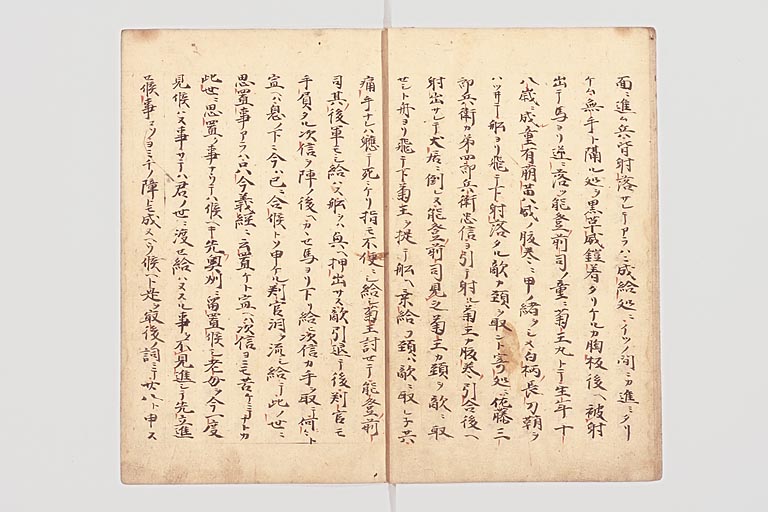 面ニ進ム兵皆射落サレテアラハニ成給処ニイツノ間ニカ進ミタリ
ケム無手ト隔ル処ヲ黒革威鎧着タリケルカ胸板後ヘ被射
出テ馬ヨリ逆ニ落ヲ能登前司ノ童ニ菊王丸トテ生年十
八歳ニ成童有萠黄威ノ腹巻ニ甲ノ緒ヲシメ白柄長刀鞘ヲ
ハツシテ船ヨリ飛テ下射落タル敵カ頚ヲ取ント寄処ニ佐藤三
郎兵衛カ弟四郎兵衛忠信ヨ引テ射ル菊王カ腹巻引合後ヘ
射出サレテ犬居ニ倒レヌ能登前司見之菊王カ頚ヲ敵ニ取
セシト舟ヨリ飛テ下菊王ヲ提テ船ヘ乗給フ頚ハ敵ニ取レ子共
痛手ナレハ軈テ死ニケリ指モ不便ニシ給シ菊王討セテ能登前
司其後軍モシ給ハス船ヲハ奥ヘ押出サス敵引退テ後判官モ
手負タル次信ヲ陣後ヘカヽセ馬ヨリ下リ給ニ次信カ手ヲ取ニ何ニト
宣ヘハ息ノ下ニ今ハ已ニ合候トソ申ケル判官泪ヲ流シ給テ此ノ世ニ
思置事アラハ只今義経ニ云置ケト宣ヘハ次信ヨニモ苦ケニテトカ
此世ニ思置ク事アリテハ候ヘキ先奥州ニ留置候シ老母ヲ今一度
見候ハヌ事サテハ君ノ世ニ渡セ給ハヌヲ不見進テ先立進
セ候事コソヨミチノ障トモ成ヌヘク候ヘト是ヲ最後ノ詞ニテ廿八ト申ス